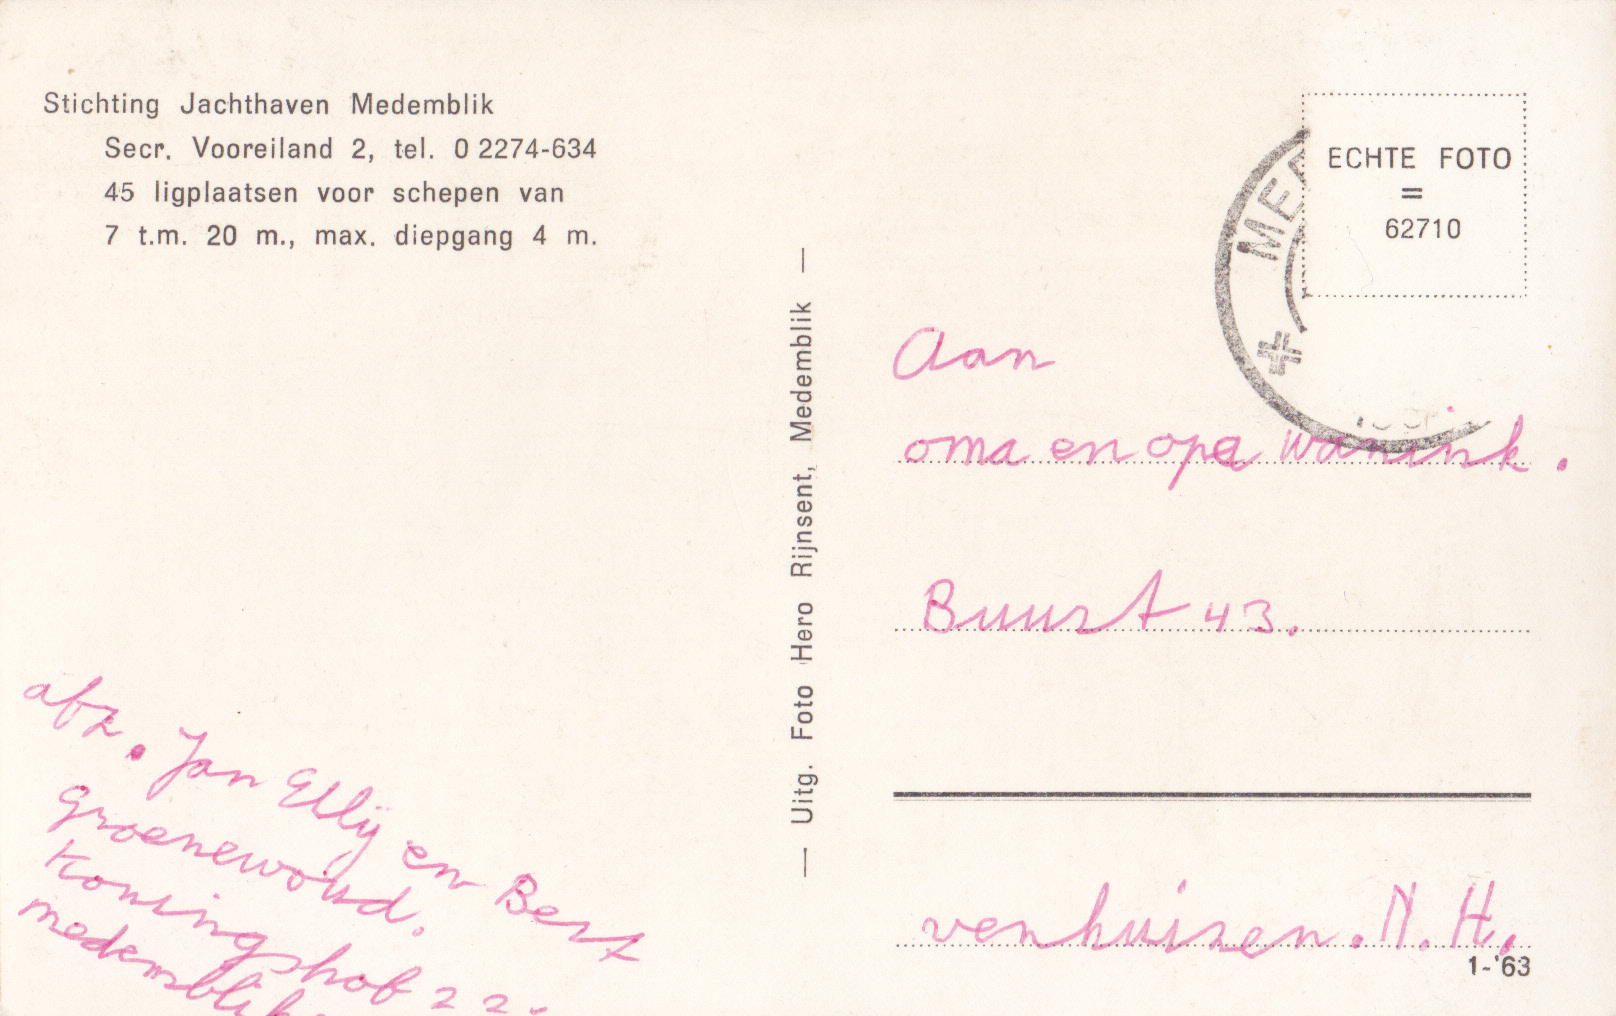 Stichting Jachthaven Medemblik
Secr. Vooreiland 2, tel. 0 2274-634
45 ligplaatsen voor schepen van
7 t.m. 20 m., max. diepgang 4 m.
afz. Jan Elly en Bert
Groenewoud.
Koningshof 22.
medemblik.
— Uitg. Foto Hero Rijnsent, Medemblik —
ECHTE FOTO
=
62710
Aan
oma en opa Wanink.
Buurt 43.
venhuizen. N. H.
1-'63